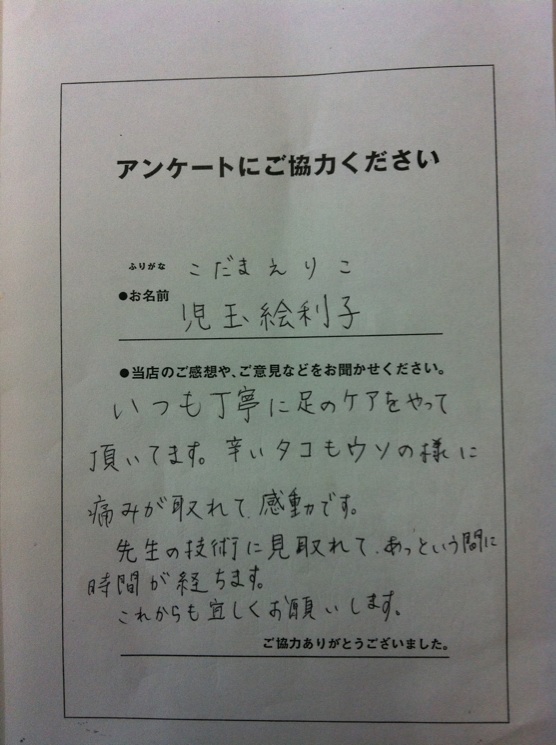 アンケートにご協力ください
ふりがな こだまえりこ
●お名前 児玉絵利子
●当店のご感想や、ご意見などをお聞かせください。
いつも丁寧に足のケアをやって
頂いてます。辛いタコもウソの様に
痛みが取れて、感動です。
先生の技術に見取れて、あっという間に
時間が経ちます。
これからも宜しくお願いします。
ご協力ありがとうございました。